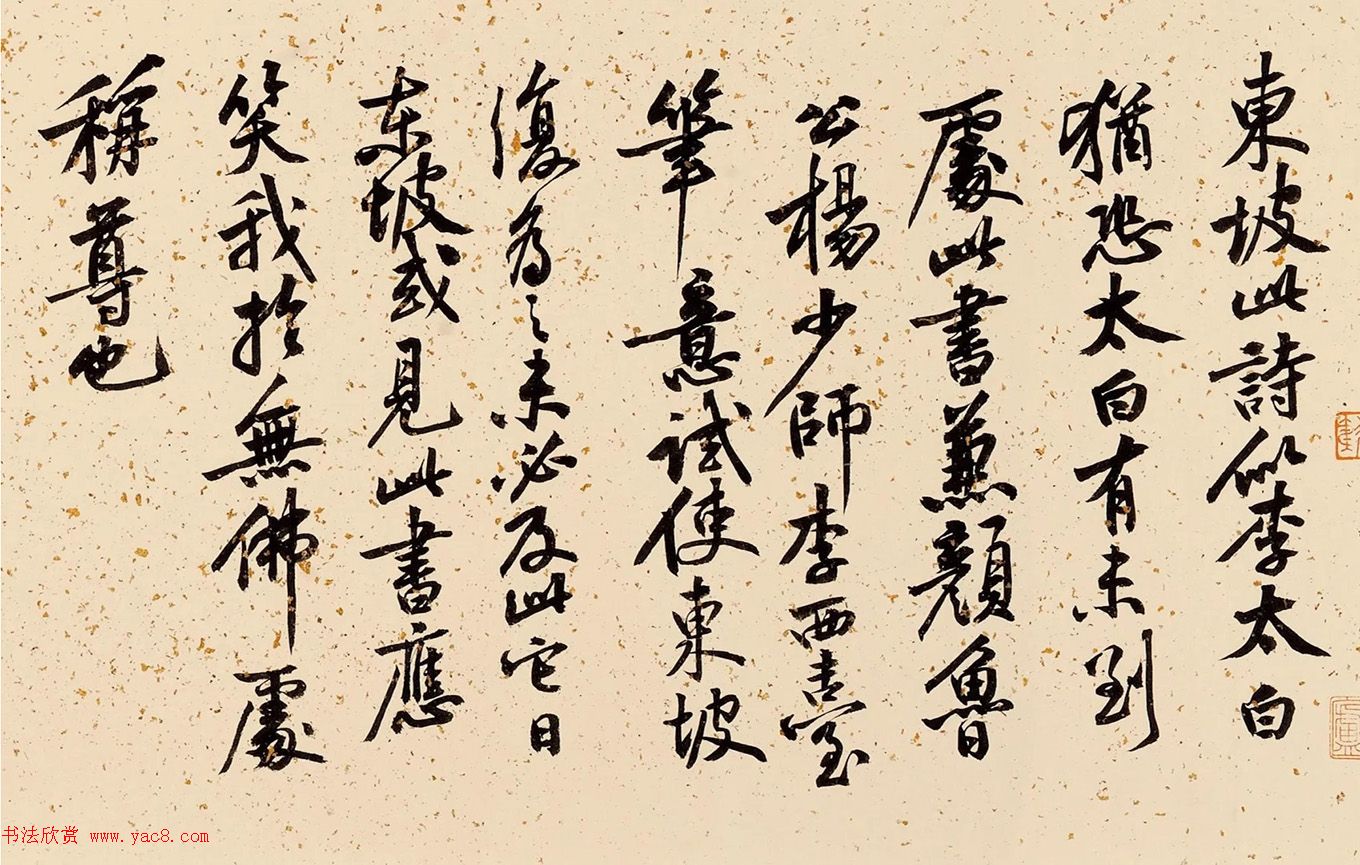 東坡此詩似李太白
猶恐太白有未到
處此書兼顏魯
公楊少師李西臺
筆意試使東坡
復為之未必及此它日
東坡或見此書應
笑我於無佛處
稱尊也
书法欣赏 www.yac8.com